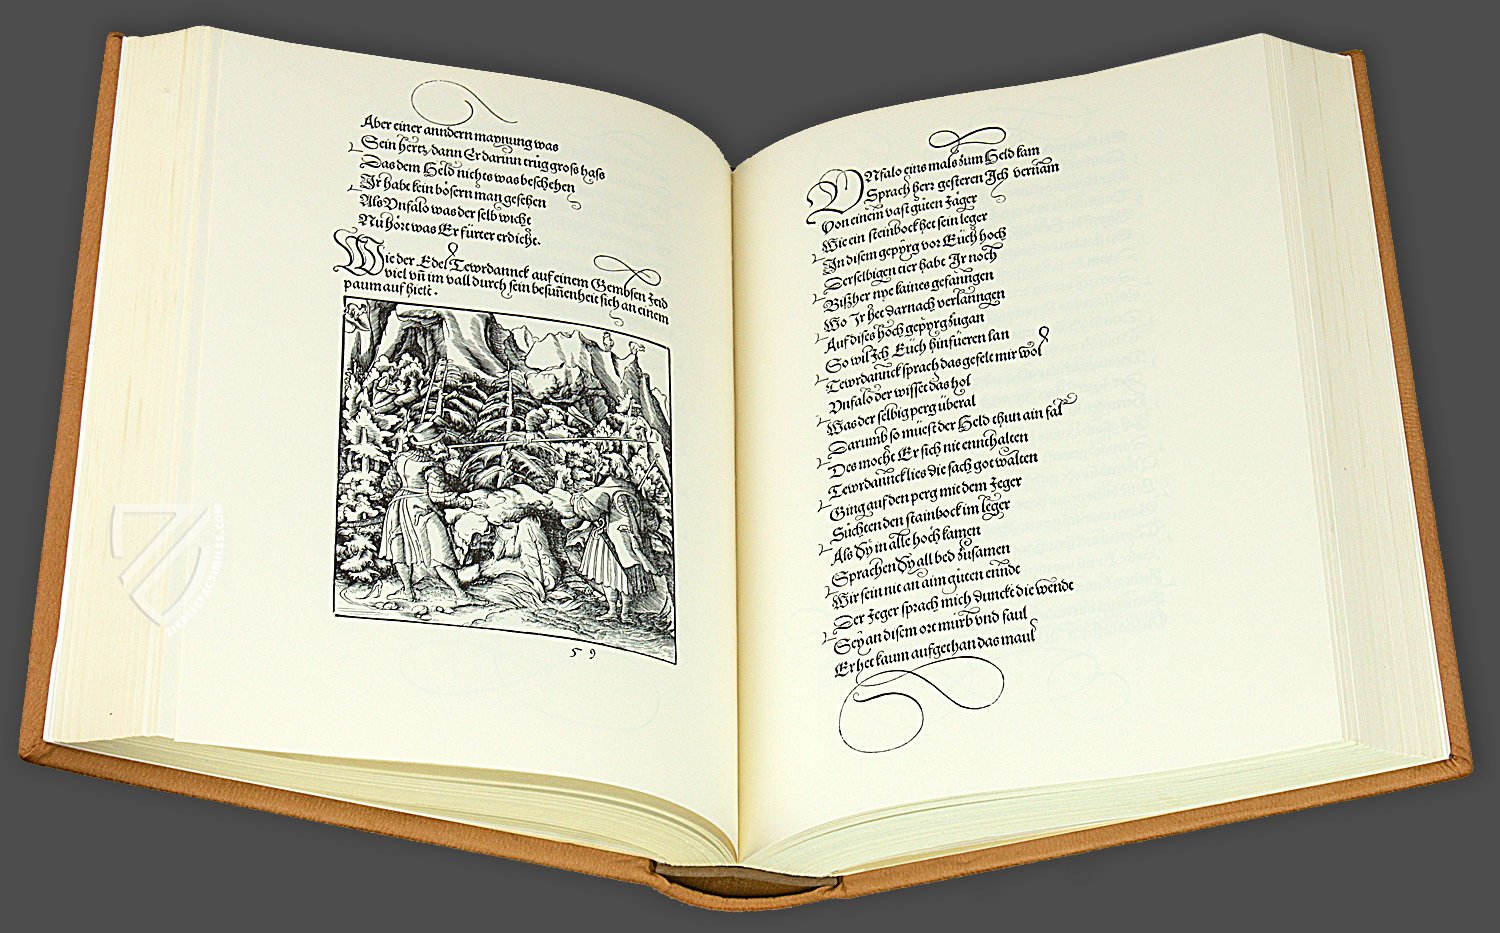 Aber einer anndern maynung was
Sein hertz, dann Er darinn trůg gross hass
Das dem Held nichts was beschehen
Ir habt kein bösern man gesehen
Als Vnfalo was der selb wicht
Nu hört was Er fürter erdicht.
Wie der Edel Tewrdannck auf einem Gembsen Jeid
viel vñ im vall durch sein besiñenheit sich an einem
paum auf hielt.
59
VNfalo eins mals zum Held kam
Sprach herr gesteren Ich vernam
Von einem vast gůten Jäger
Wie ein steinbock het sein leger
In disem gepyrg vor Euch hoch
Derselbigen tier habt Ir noch
Biszher nye kaines gefanngen
Wo Ir het darnach verlanngen
Auf dises hoch gepyrg zugan
So wil Ich Euch hinfüeren lan
Tewrdannck sprach das gefelt mir wol
Vnfalo der wisset das hol
Was der selbig perg überal
Darumb so müest der Held thun ain fal
Des mocht Er sich nit enthalten
Tewrdannck lies die sach got walten
Ging auf den perg mit dem Jeger
Sůchten den stainbock im leger
Als Sy in alle hoch kamen
Sprachen Sy all bed zusamen
Wir sein nit an aim gůten ennde
Der Jeger sprach mich dunckt die wende
Sey an disem ort mürb vnd faul
Er het kaum aufgethan das maul
ZIEREIS FACSIMILES.COM